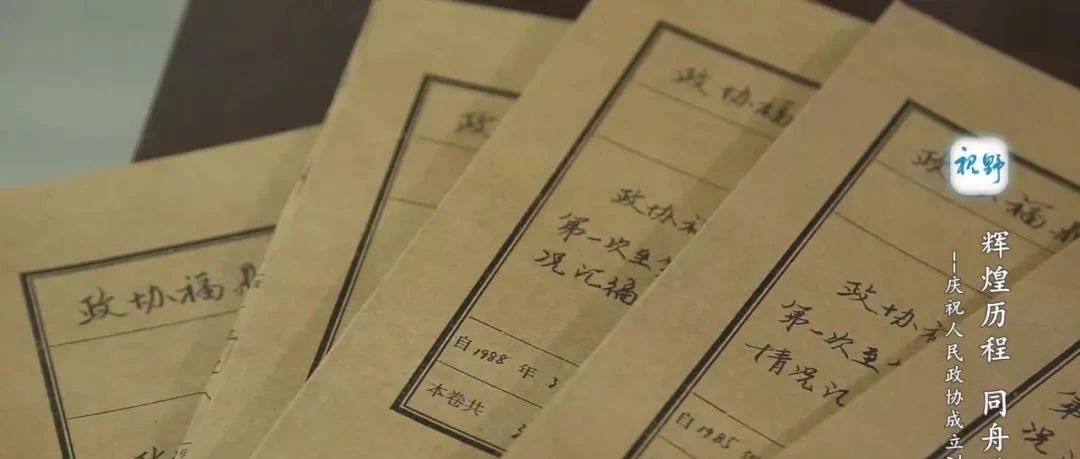 政协福鼎
政
政协福
政协福
第一次至
况汇编
自1988年3
本卷共
政 福鼎
政协
第一次至
情况汇
自1985年
第
况
视野
辉煌历程 同舟
——庆祝人民政协成立